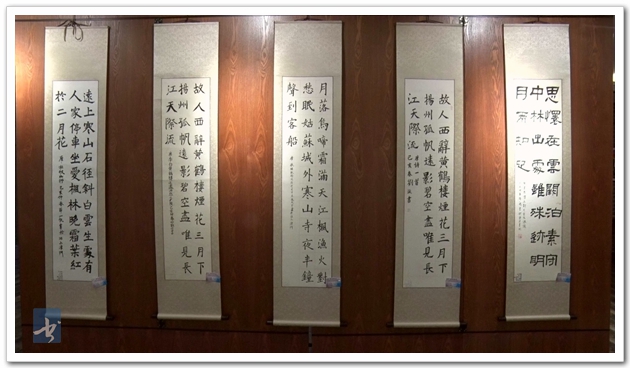 遠上寒山石徑斜白雲生處有
人家停車坐愛楓林晚霜葉紅
於二月花
故人西辭黃鶴樓煙花三月下
揚州孤帆遠影碧空盡唯見長
江天際流
月落烏啼霜滿天江楓漁火對
愁眠姑蘇城外寒山寺夜半鐘
聲到客船
故人西辭黃鶴樓煙花三月下
揚州孤帆遠影碧空盡唯見長
江天際流
思懷在雲闕泊素守
中林出處雖殊跡明
月兩知心